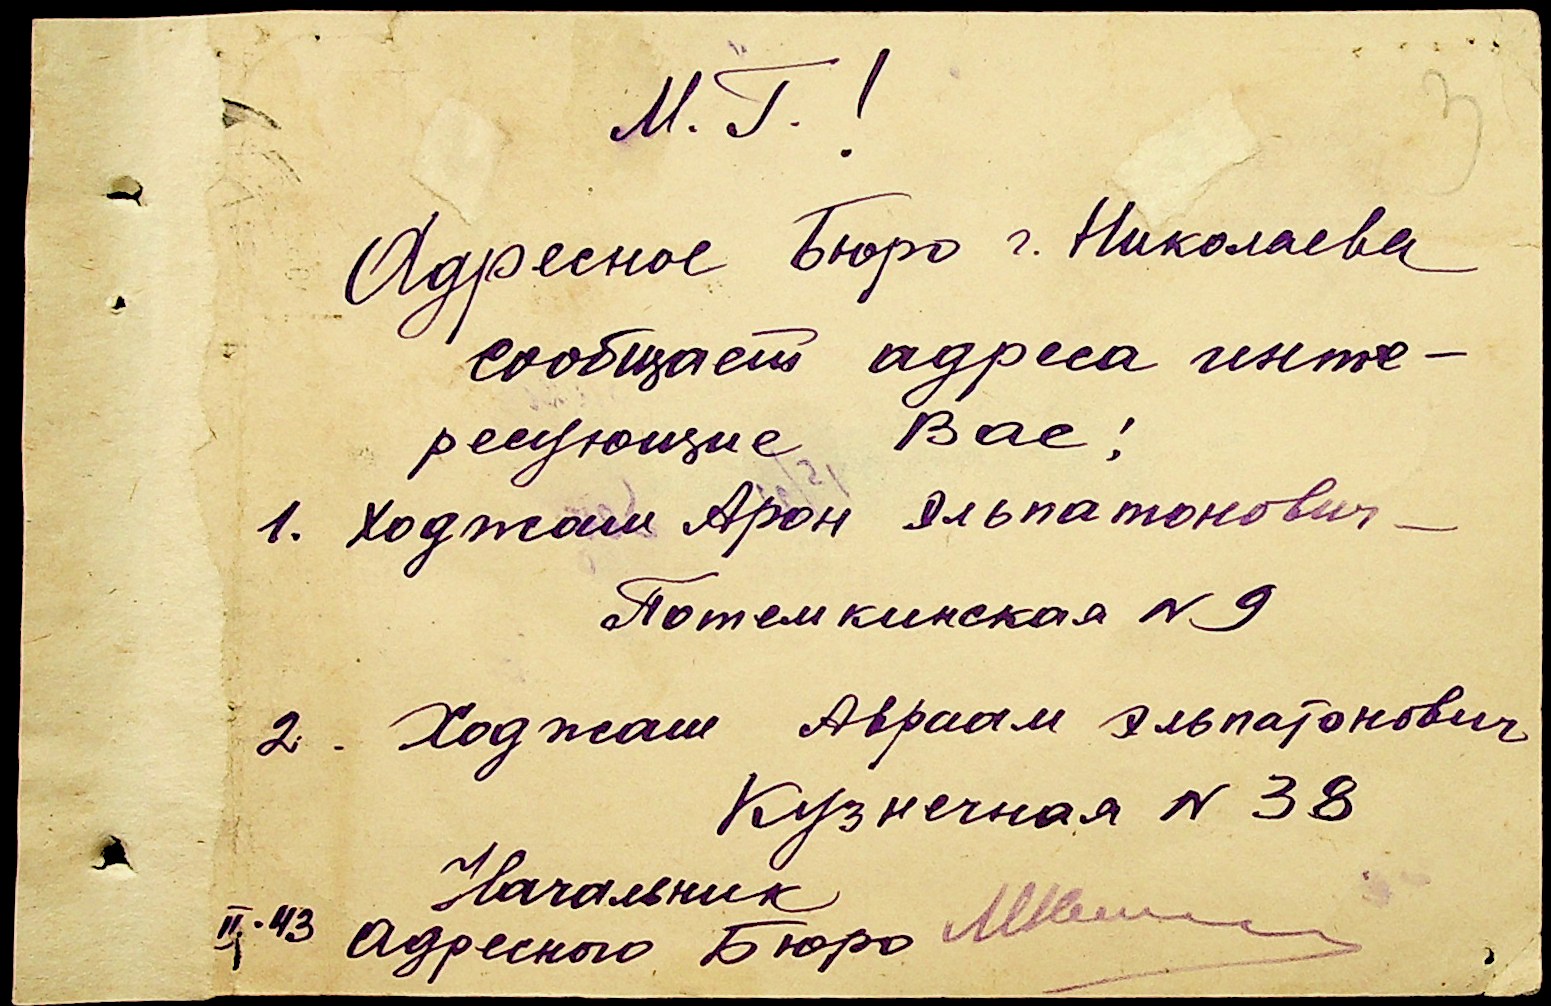 3
М. Г. !
Адресное Бюро г. Николаева
сообщает адреса инте-
ресующие Вас:
1. Ходжаш Арон Эльпатонович -
Потемкинская N 9
2. Ходжаш Авраам Эльпатонович
Кузнечная N 38
Начальник
II. 43 Адресного Бюро